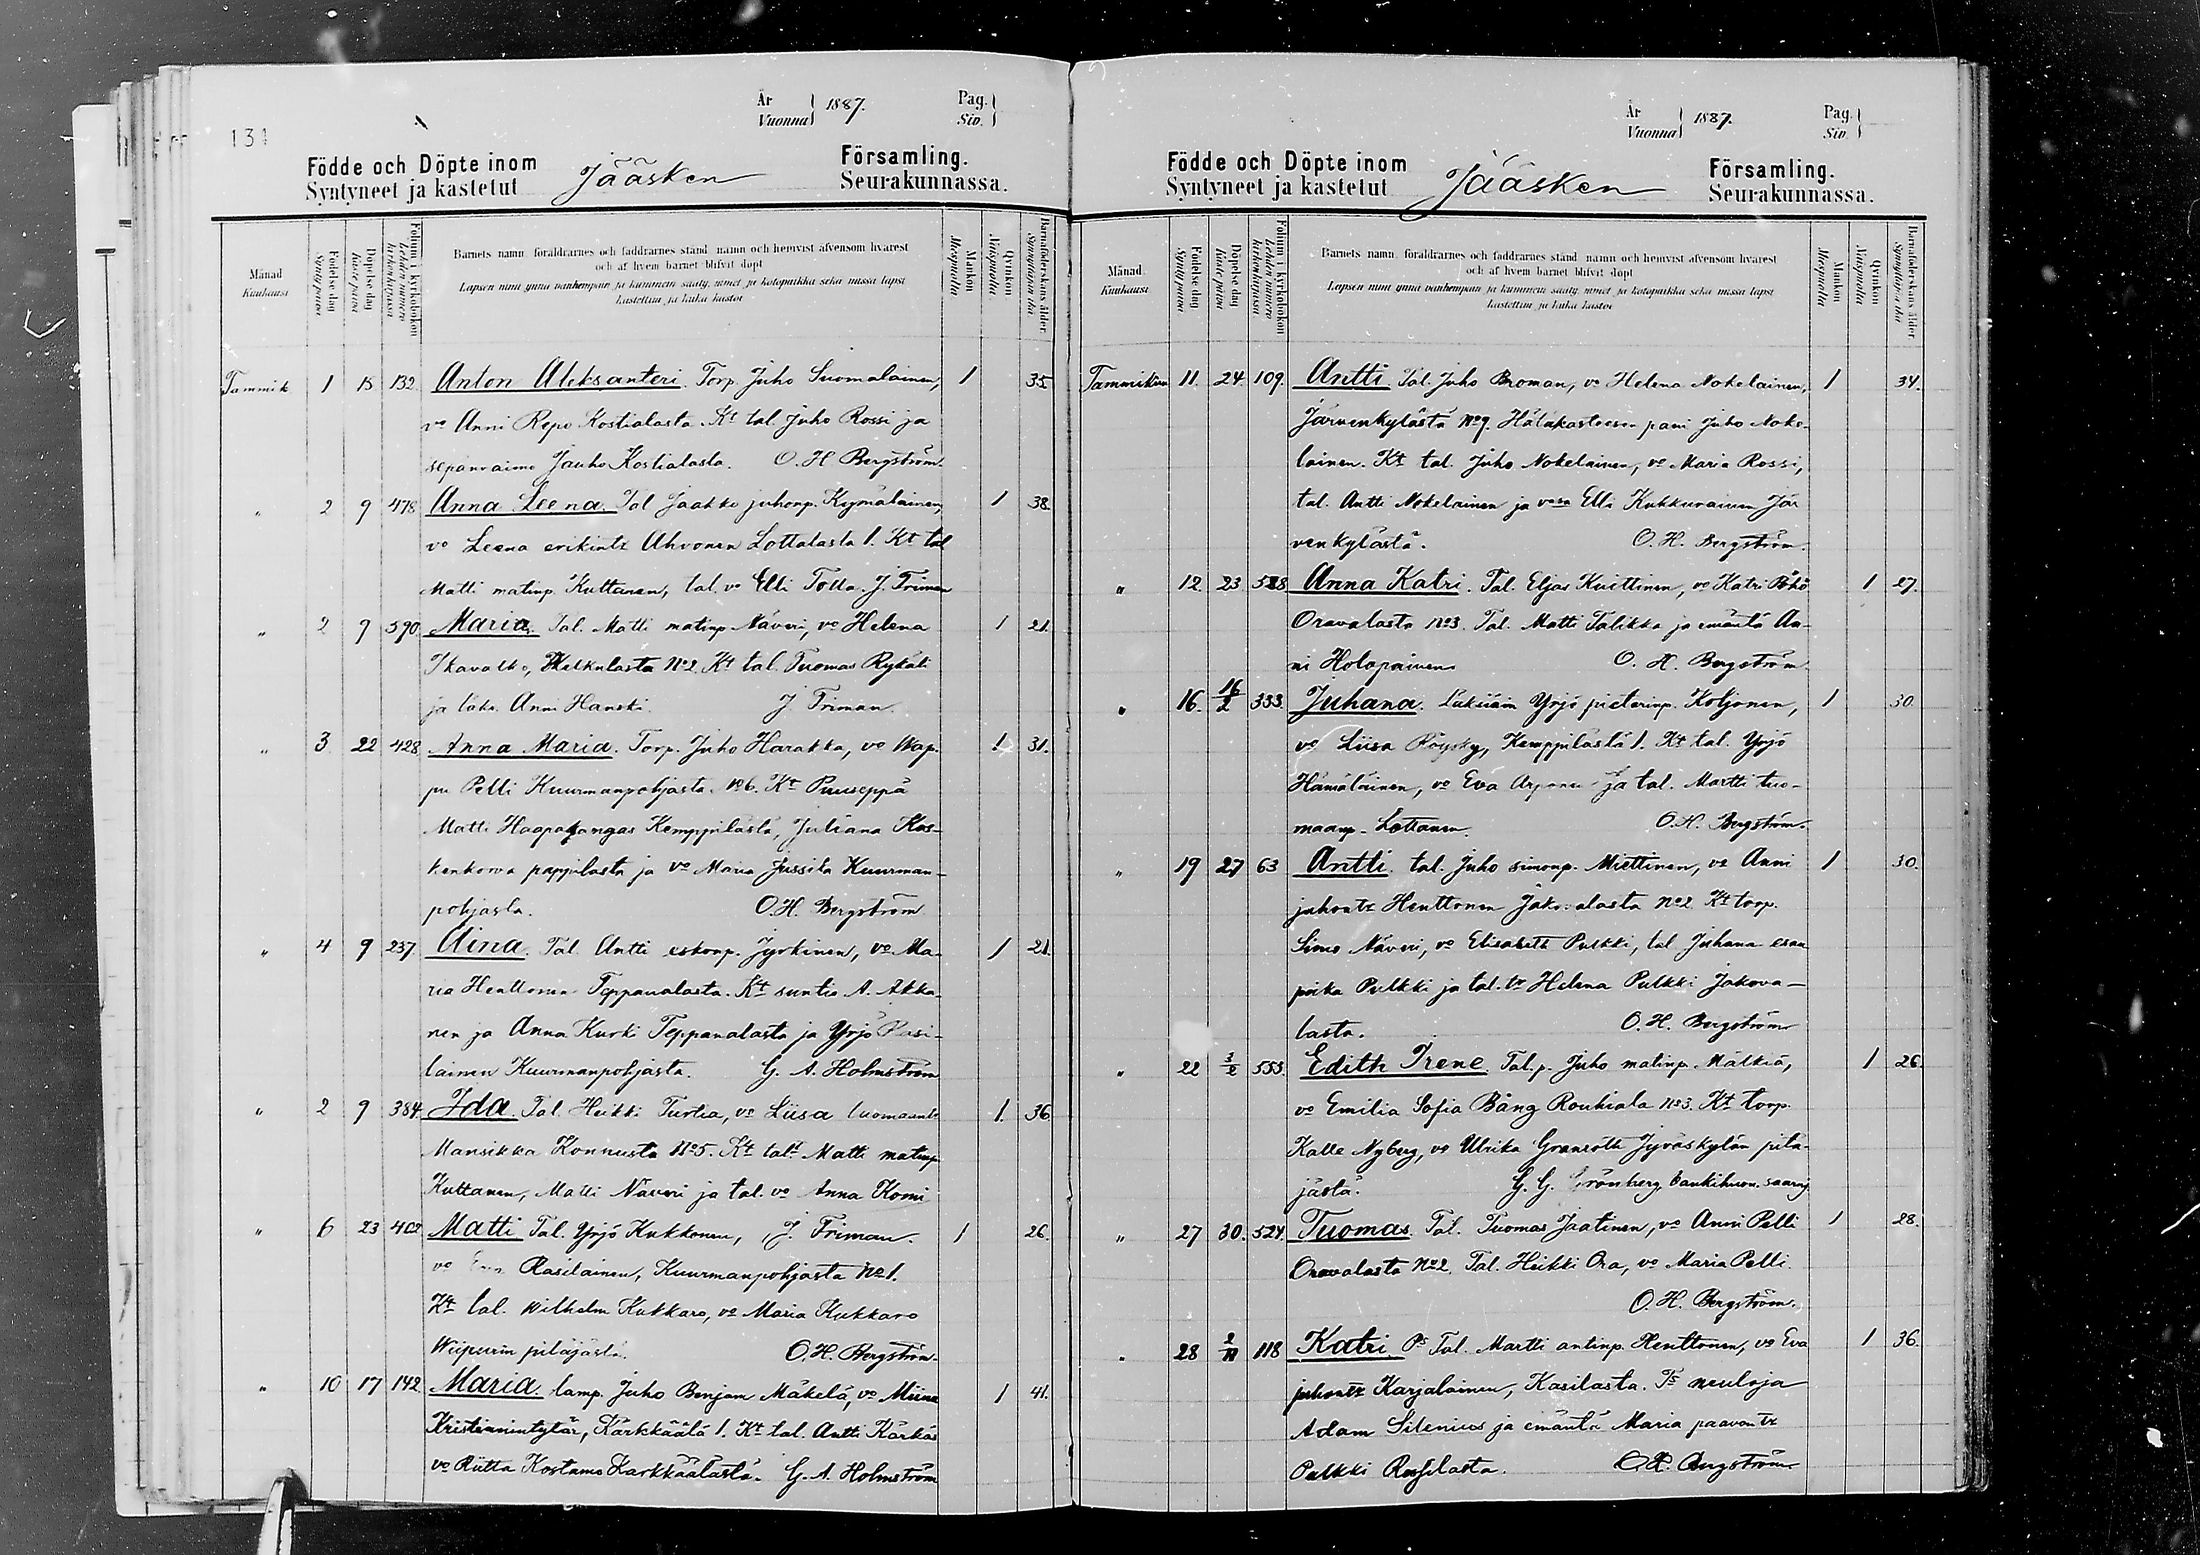 131
År
Vuonna
1887.
Pag.
Siv.
Födde och Döpte inom
Syntyneet ja kastetut
Jääsken
Församling.
Seurakunnassa.
Månad
Kuukausi
Födelse dag
Syntö päivä
Döpelse dag
Kaste päivä
Folium i kyrkoboken
Lehden numero kirkonkirjassa
Barnets namn, föräldrarnes och faddrarnes stånd, namn och hemvist äfvensom hvarest
och af hvem barnet blifvit döpt
Lapsen nimi ynnä vanhempain ja kummein sääty, nimet ja kotopaikka sekä missä lapsi
kastettiin ja kuka kastoi
Mankön
Miespuolia
Qvinkön
Naispuolia
Barnaföderskans ålder
Synnyttäjän ikä
Tammik 1 15 132 Anton Aleksanteri. Torp. Juho Suomalainen, 1 35
vo Anni Repo Kostialasta. Kt tal. Juho Rossi ja
sepänvaimo Jauho Kostialasta. O. H Bergström.
" 2 9 478 Anna Leena. Tal Jaakko juhonp. Kymäläinen, 1 38.
vo Leena erikintr Ahvonen Lottalasta 1. Kt tal
Matti matinp. Kuttanen, tal. vo Elli Tolla. J. Friman
" 2 9 390 Maria. Tal. Matti matinp Näveri, vo Helena 1 21.
Ikävalko, No2. Kt tal. Tuomas Rykäli
ja Anni Hanski. J Friman
" 3 22 428 Anna Maria. Torp. Juho Harakka, vo Wap- 1 31.
pu Pelli Kuurmanpohjasta No6. Kt Puuseppä
Matti Haapakangas Kemppilästä, Juliana Kos-
kenkorva pappilasta ja vo Maria Jussila Kuurman-
pohjasta. O.H. Bergström
" 4 9 237. Aina. Tal. Antti eskonp. Jyrkinen, vo Ma- 1 21.
ria Henttonen Teppanalasta. Kt suntio A. Akka-
nen ja Anna Kurki Teppanalasta ja Yrjö Rasi-
lainen Kuurmanpohjasta. G. A. Holmström
" 2 9 384. Ida. Tal. Heikki Turkia, vo Liisa tuomaantr 1. 36
Mansikka Konnusta No5. Kt talt Matti matinp
Kuttanen, Matti Näveri ja tal. vo Anna Komi
" 6 23 402 Matti Tal. Yrjö Kukkonen, J. Friman. 1 26.
vo Rasilainen, Kuurmanpohjasta No1.
Kt tal. Wilhelm Kukkaro, vo Maria Kukkaro
Wiipurin pitäjästä. O.H. Bergström.
" 10 17 142 Maria. lamp. Juho Benjam Mäkelä, vo Miina 1 41.
Kristianintytär, Kärkkäälä 1. Kt tal. Antti Kärkäs
vo Riitta Kostamo Kärkkäälästä. G. A. Holmström
År
Vuonna
1887.
Pag.
Siv.
Födde och Döpte inom
Syntyneet ja kastetut
Jääsken
Församling.
Seurakunnassa.
Månad
Kuukausi
Födelse dag
Syntö päivä
Döpelse dag
Kaste päivä
Folium i kyrkoboken
Lehden numero kirkonkirjassa
Barnets namn, föräldrarnes och faddrarnes stånd, namn och hemvist äfvensom hvarest
och af hvem barnet blifvit döpt
Lapsen nimi ynnä vanhempain ja kummein sääty, nimet ja kotopaikka sekä missä lapsi
kastettiin ja kuka kastoi
Mankön
Miespuolia
Qvinkön
Naispuolia
Barnaföderskans ålder
Synnyttäjän ikä
Tammikuu 11. 24. 109. Antti. Tal. Juho Broman, vo Helena Nokelainen, 1 34.
Järvenkylästä No9. Hätäkasteesen pani Juho Noke-
lainen. Kt tal. Juho Nokelainen, vo Maria Rossi,
tal. Antti Nokelainen ja vonsa Elli Kukkurainen Jär
venkylästä. O. H. Bergström.
" 12. 23 528 Anna Katri. Tal. Eljas Kuittinen, vo Katri Pöhö 1 27.
Oravalasta No3. Tal. Matti Talikka ja emäntä An-
ni Holopainen O. H. Bergström
" 16. 16/2 333. Juhana. Lukkiain Yrjö pietarinp. Koljonen, 1 30.
vo Liisa Röysky, Kemppilästä 1. Kt tal. Yrjö
Hämäläinen, vo Eva Arponen ja tal. Martti tuo-
maanp. Lottanen. O.H. Bergström.
" 19 27 63 Antti. tal. Juho simonp. Miettinen, vo Anni 1 30.
juhontr Henttonen Jako alasta No2 Kt torp.
Simo Näveri, vo Elisabeth Pulkki, tal Juhana esan
poika Pulkki ja tal. tr Helena Pulkki Jakova-
lasta. O. H. Bergström
" 22 3/2 553. Edith Irene. Tal.p. Juho matinp. Mälkiä, 1 26.
vo Emilia Sofia Bång Rouhiala No3. Kt torp.
Kalle Nyberg, vo Ulrika Granroth Jyväskylän pitä-
jästä. G. G. Grönberg. saarng
" 27 30. 524. Tuomas. Tal. Tuomas Jaatinen, vo Anni Pelli 1 28.
Oravalasta No2. Tal. Heikki Ora, vo Maria Pelli.
O. H. Bergström.
" 28 2/ 118 Katri. Ps Tal. Martti antinp. Henttonen, vo Eva 1 36.
juhontr Karjalainen, Kasilasta. Ts neuloja
Adam Silenius ja emäntä Maria paavontr
Pulkki O.H. Bergström